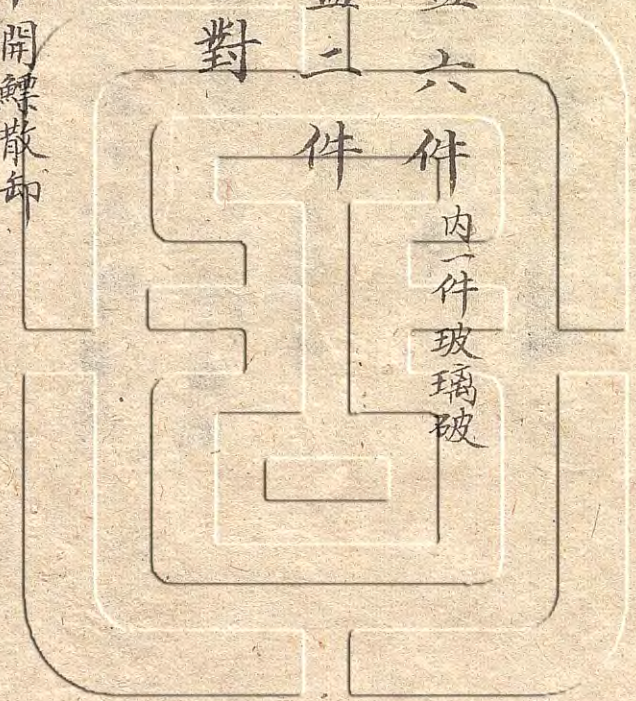 六件 内一件玻璃破
二件
對
開鰾散卸